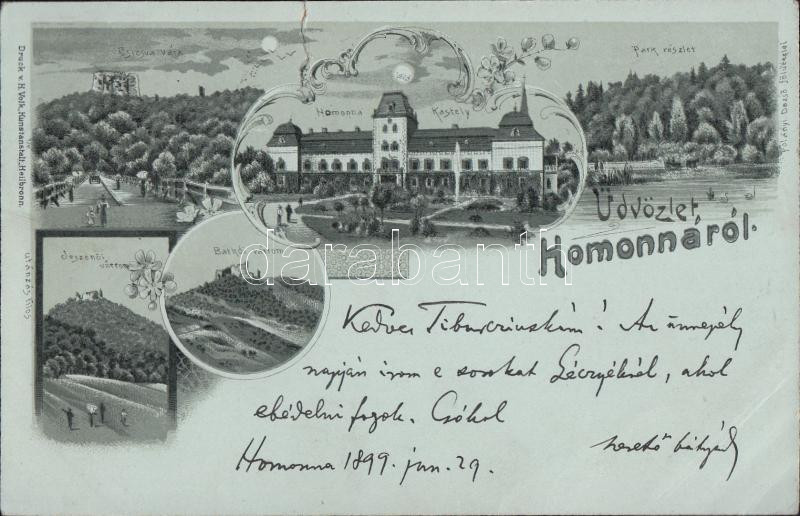 Csicsva vára
Homonna Kastely
Park részlet
Üdvözlet
Homonnáról.
Jeszenői
várrom
Barkó várrom
Druck v. H. Volk, Kunstanstalt, Heilbronn.
utánzás tilos
Polányi Dezső
darabanth
Kedves Tiburcziuskám! Az ünnepély
napján irom e sorokat Géczyéktől, ahol
ebédelni fogok. Csókol
szerető bátyád
Homonna 1899. jun. 29.